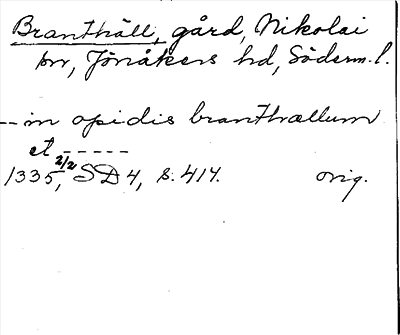 Branthäll, gård, Nikolai
sn, Jönåkers hd, Söderm. l.
-- in opidis branthællum
et -----
1335 2/2, SD 4, s. 417. orig.